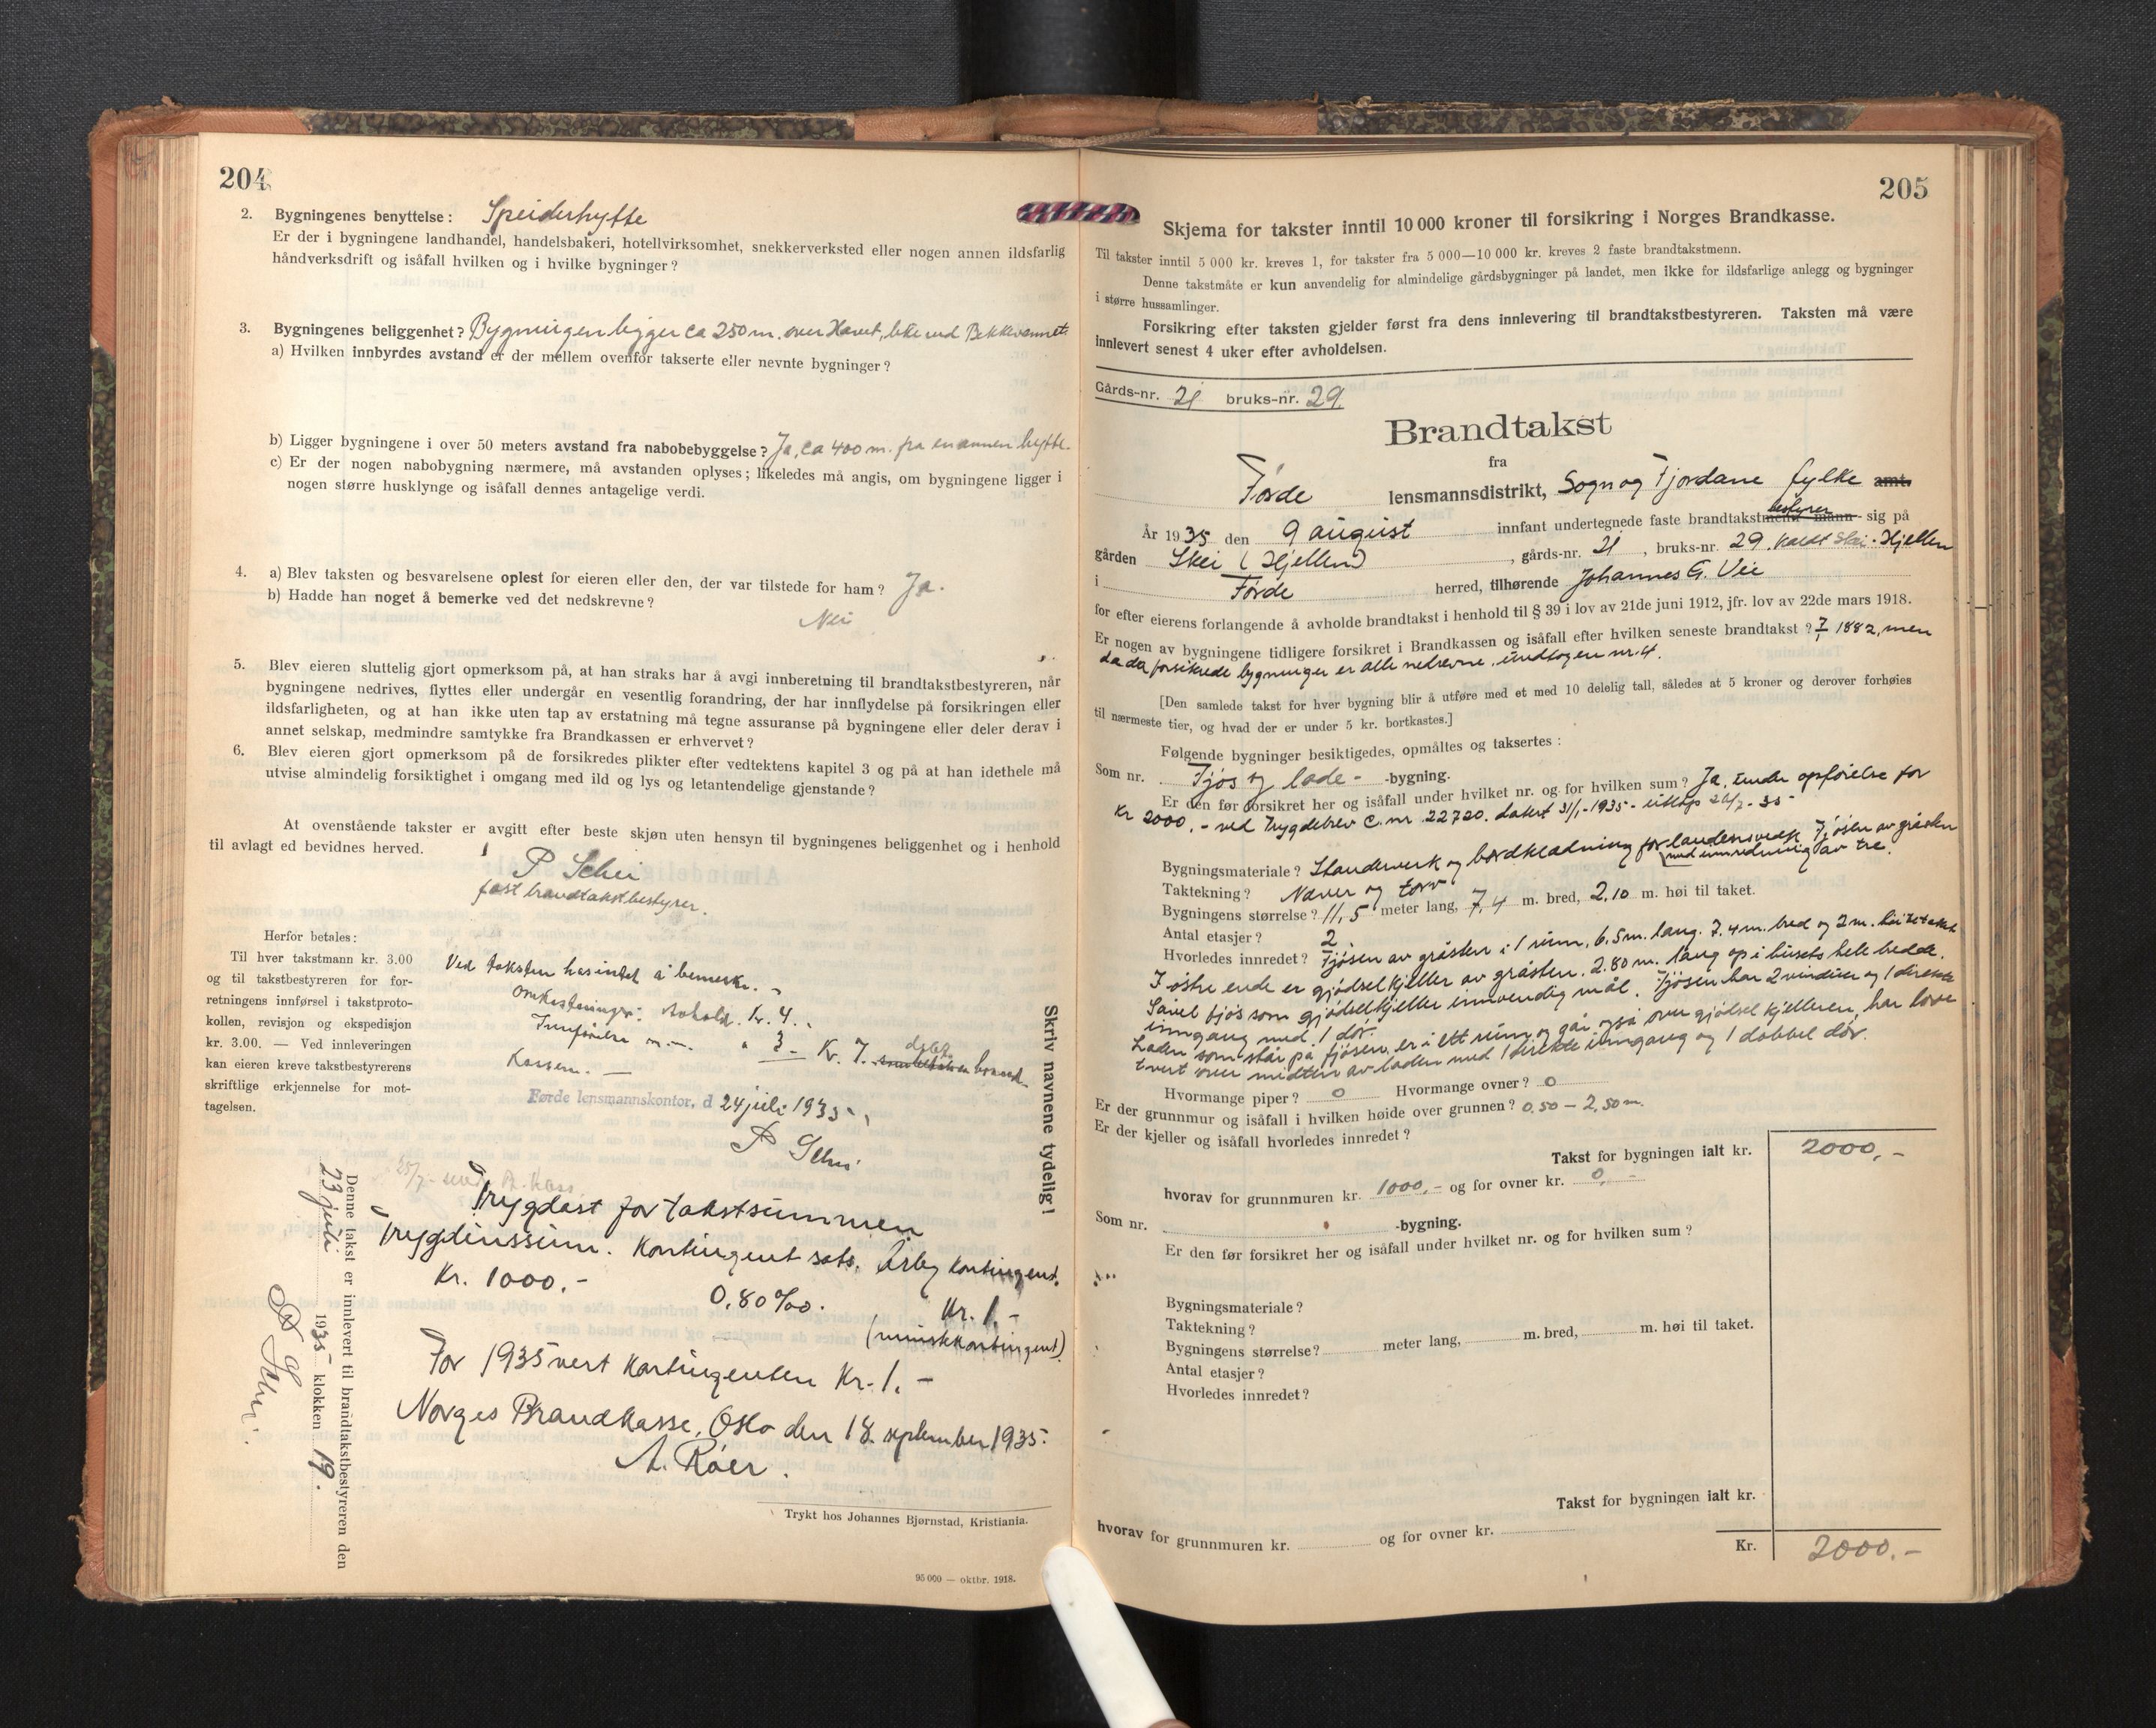 204
2. Bygningenes benyttelse: Speiderhytte
Er der i bygningene landhandel, handelsbakeri, hotellvirksomhet, snekkerverksted eller nogen annen ildsfarlig
håndverksdrift og isåfall hvilken og i hvilke bygninger?
3. Bygningenes beliggenhet? Bygningen ligger ca 250 m. over Havet, like ved Bekkevannet.
a) Hvilken innbyrdes avstand er der mellem ovenfor takserte eller nevnte bygninger?
b) Ligger bygningene i over 50 meters avstand fra nabobebyggelse? Ja, ca 400 m. fra en annen hytte.
c) Er der nogen nabobygning nærmere, må avstanden oplyses; likeledes må angis, om bygningene ligger i
nogen større husklynge og isåfall dennes antagelige verdi.
4. a) Blev taksten og besvarelsene oplest for eieren eller den, der var tilstede for ham? Ja.
b) Hadde han noget å bemerke ved det nedskrevne?
Nei
5. Blev eieren sluttelig gjort opmerksom på, at han straks har å avgi innberetning til brandtakstbestyreren, når
bygningene nedrives, flyttes eller undergår en vesentlig forandring, der har innflydelse på forsikringen eller
ildsfarligheten, og at han ikke uten tap av erstatning må tegne assuranse på bygningene eller deler derav i
annet selskap, medmindre samtykke fra Brandkassen er erhvervet?
6. Blev eieren gjort opmerksom på de forsikredes plikter efter vedtektens kapitel 3 og på at han idethele må
utvise almindelig forsiktighet i omgang med ild og lys og letantendelige gjenstande?
At ovenstående takster er avgitt efter beste skjøn uten hensyn til bygningenes beliggenhet og i henhold
til avlagt ed bevidnes herved.
P Schei
fast brandtakstbestyrer.
Herfor betales:
Til hver takstmann kr. 3.00
og til takstbestyreren for for-
retningens innførsel i takstproto-
kollen, revisjon og ekspedisjon
kr. 3.00. — Ved innleveringen
kan eieren kreve takstbestyrerens
skriftlige erkjennelse for mot-
tagelsen.
Ved taksten has intet å bemerke. -
Omkostninger: Avhold. kr. 4. -
Innførelse m. - " 3 - Kr. 7.
Kassen. —
Førde lensmannskontor, d 24 juli 1935
P Schei
25/7- send B. kass
Skriv navnene tydelig!
Denne takst er innlevert til brandtakstbestyreren den
23 juli 1935 klokken 19.
P Schei.
Trygdast for takstsummen
Trygdingssum. Kontingent sats. Årleg kontingent.
Kr. 1000.- 0,80‰. Kr. 1.-
(minstekontingent)
For 1935 vert kontingenten Kr. 1. -
Norges Brandkasse, Oslo den 18. september 1935.
A. Røer.
Trykt hos Johannes Bjørnstad, Kristiania.
95 000 — oktbr. 1918.
205
Skjema for takster inntil 10 000 kroner til forsikring i Norges Brandkasse.
Til takster inntil 5 000 kr. kreves 1, for takster fra 5 000—10 000 kr. kreves 2 faste brandtakstmenn.
Denne takstmåte er kun anvendelig for almindelige gårdsbygninger på landet, men ikke for ildsfarlige anlegg og bygninger
i større hussamlinger.
Forsikring efter taksten gjelder først fra dens innlevering til brandtakstbestyreren. Taksten må være
innlevert senest 4 uker efter avholdelsen.
Gårds-nr. 21 bruks-nr. 29
Brandtakst
fra
Førde lensmannsdistrikt, Sogn og Fjordane fylke amt.
År 1935 den 9 august innfant undertegnede faste brandtakstmenn mann bestyrer sig på
gården Skei (Hjellen), gårds-nr. 21, bruks-nr. 29 kaldt Skei-Hjellen
i Førde herred, tilhørende Johannes G. Vie
for efter eierens forlangende å avholde brandtakst i henhold til § 39 i lov av 21de juni 1912, jfr. lov av 22de mars 1918.
Er nogen av bygningene tidligere forsikret i Brandkassen og isåfall efter hvilken seneste brandtakst? 7/ 1882, men
da da forsikrede bygninger er alle nedrevne, undtagen nr. 4.
[Den samlede takst for hver bygning blir å utføre med et med 10 delelig tall, således at 5 kroner og derover forhøies
til nærmeste tier, og hvad der er under 5 kr. bortkastes.]
Følgende bygninger besiktigedes, opmåltes og taksertes:
Som nr. Fjøs og lade- -bygning.
Er den før forsikret her og isåfall under hvilket nr. og for hvilken sum? Ja, under opførelse for
Kr 2000.- ved Trygdebrev C. nr 22720. datert 31/1-1935- utløp 20/7-35
Bygningsmateriale? Standerverk og bordklædning for ladens vedk. Fjøsen av gråsten
med innredning av tre.
Taktekning? Næver og torv
Bygningens størrelse? 11,5 meter lang, 7,4 m. bred, 2,10 m. høi til taket.
Antal etasjer? 2
Hvorledes innredet? Fjøsen av gråsten i 1 rum, 6.5m. lang. 7.4m. bred og 2 m. høi til taket
I østre ende er gjødselkjeller av gråsten. 2.80 m. lang op i husets hele bredde.
Såvel fjøs som gjødselkjeller innvendig mål. Fjøsen har 2 vinduer og 1 direkte
inngang med 1 dør.
Laden som står på fjøsen, er i ett rum og går også over gjødselkjelleren, har låve
tvert over midten av laden med 1 direkte inngang og 1 dobbel dør.
Hvormange piper? 0 Hvormange ovner? 0
Er der grunnmur og isåfall i hvilken høide over grunnen? 0,50 — 2,50 m.
Er der kjeller og isåfall hvorledes innredet?
Takst for bygningen ialt kr. 2000,-
hvorav for grunnmuren kr. 1000,- og for ovner kr. 0,-
Som nr. -bygning.
Er den før forsikret her og isåfall under hvilket nr. og for hvilken sum?
Bygningsmateriale?
Taktekning?
Bygningens størrelse? meter lang, m. bred, m. høi til taket.
Antal etasjer?
Hvorledes innredet?
Takst for bygningen ialt kr.
hvorav for grunnmuren kr. og for ovner kr.
Kr. 2000.-